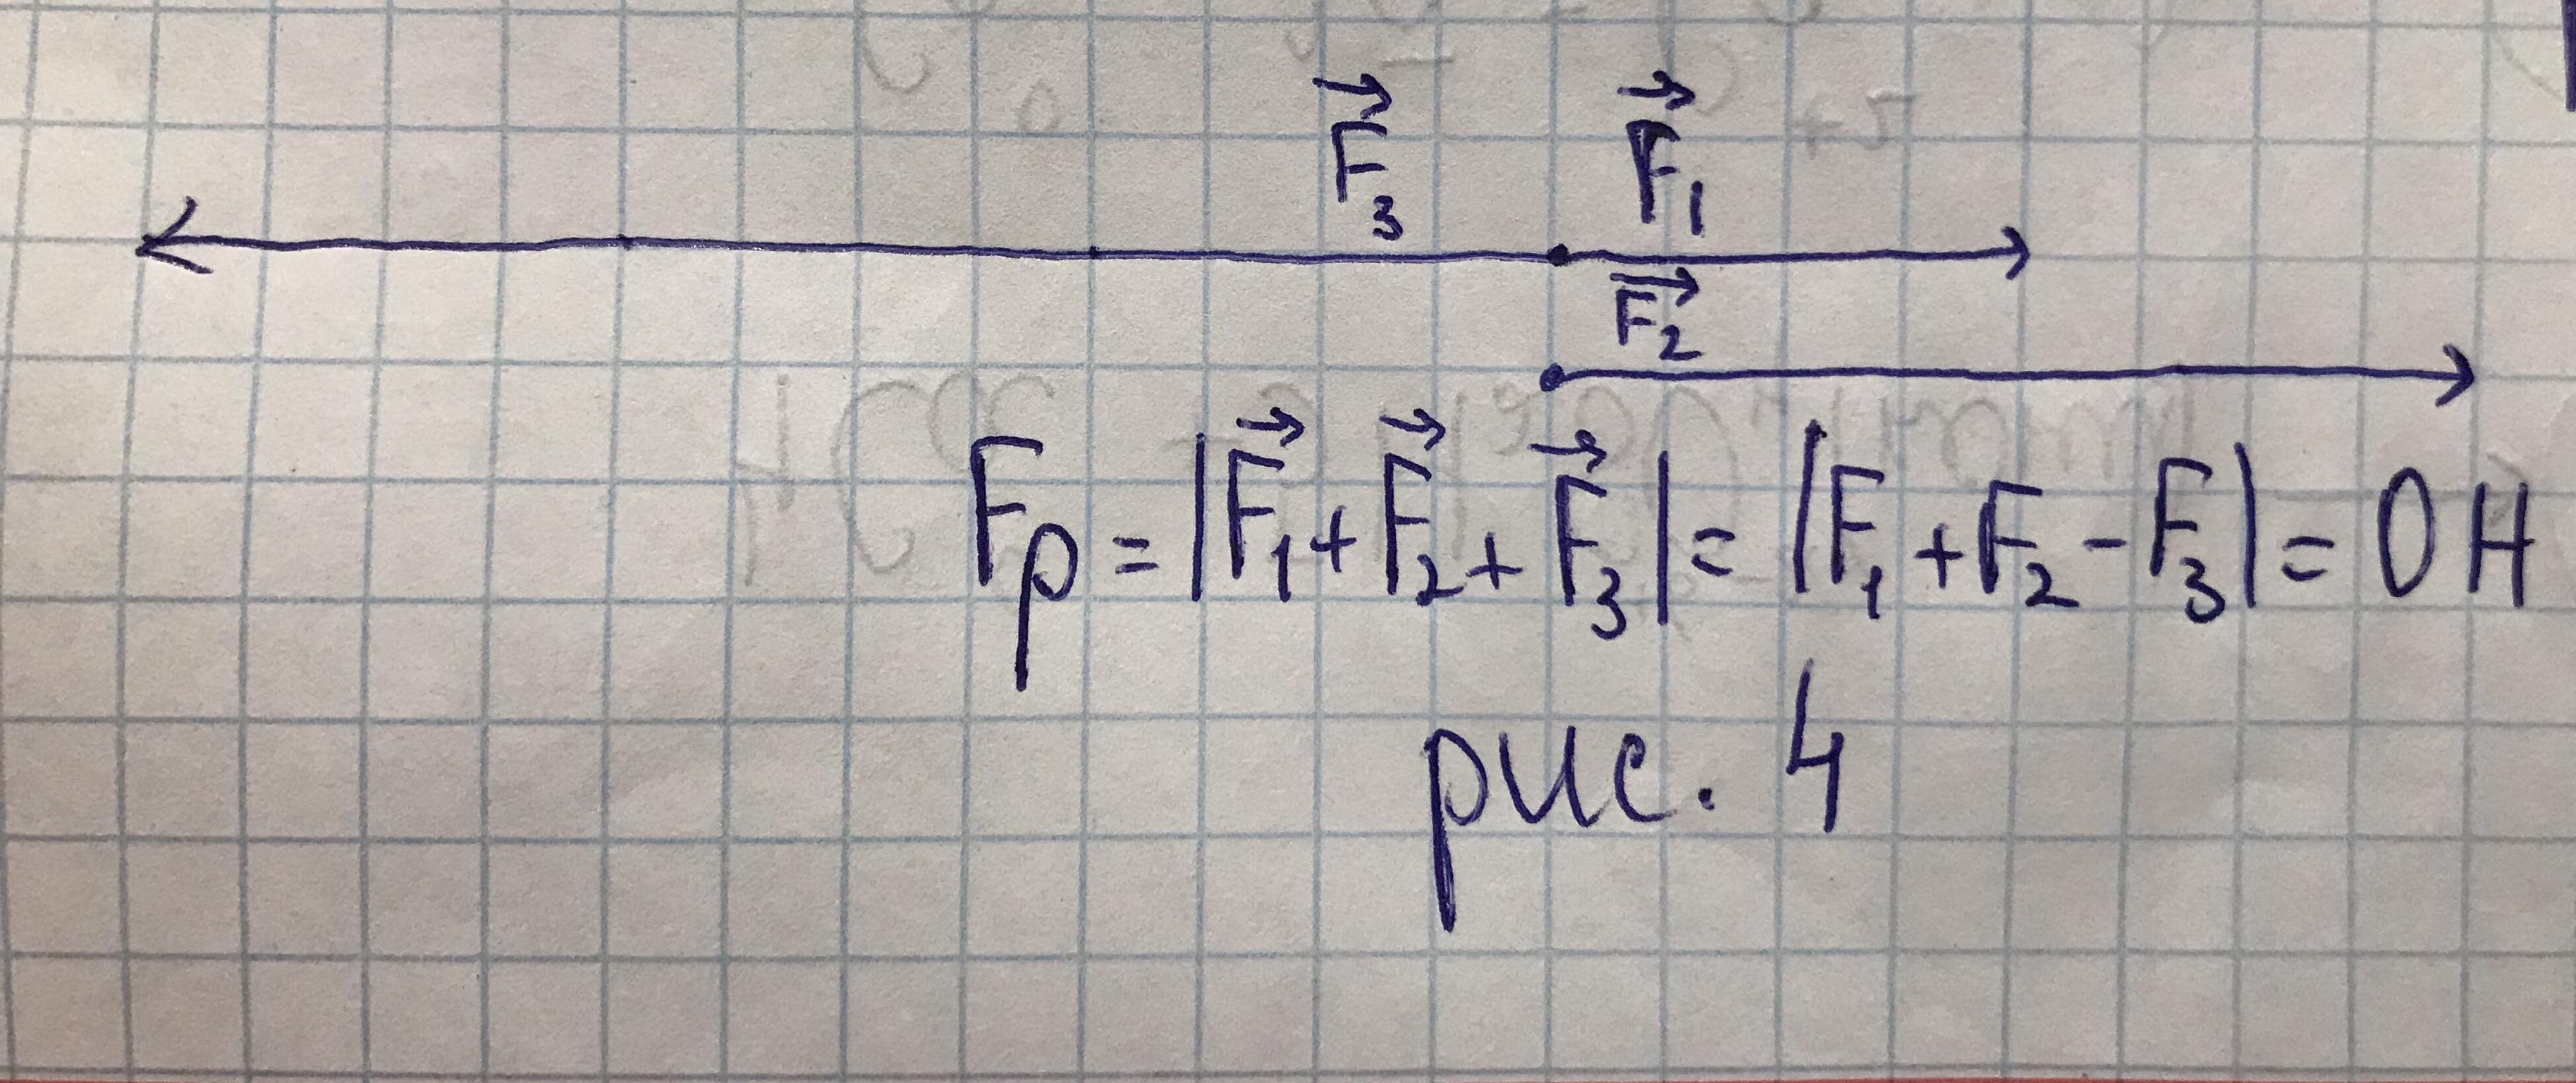 F⃗₃ F⃗₁
F⃗₂
Fр = |F⃗₁ + F⃗₂ + F⃗₃| = |F₁ + F₂ - F₃| = 0 Н
рис. 4